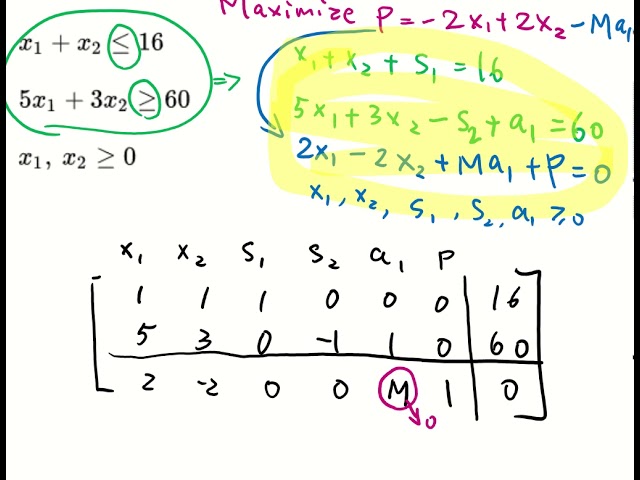 Maximize P = -2x₁ + 2x₂ - Ma₁
x₁ + x₂ ≤ 16
5x₁ + 3x₂ ≥ 60
x₁, x₂ ≥ 0
⇒
x₁ + x₂ + s₁ = 16
5x₁ + 3x₂ - s₂ + a₁ = 60
2x₁ - 2x₂ + Ma₁ + P = 0
x₁, x₂, s₁, s₂, a₁ ≥ 0
x₁ x₂ s₁ s₂ a₁ P
1 1 1 0 0 0 | 16
5 3 0 -1 1 0 | 60
2 -2 0 0 M 1 | 0
→ 0